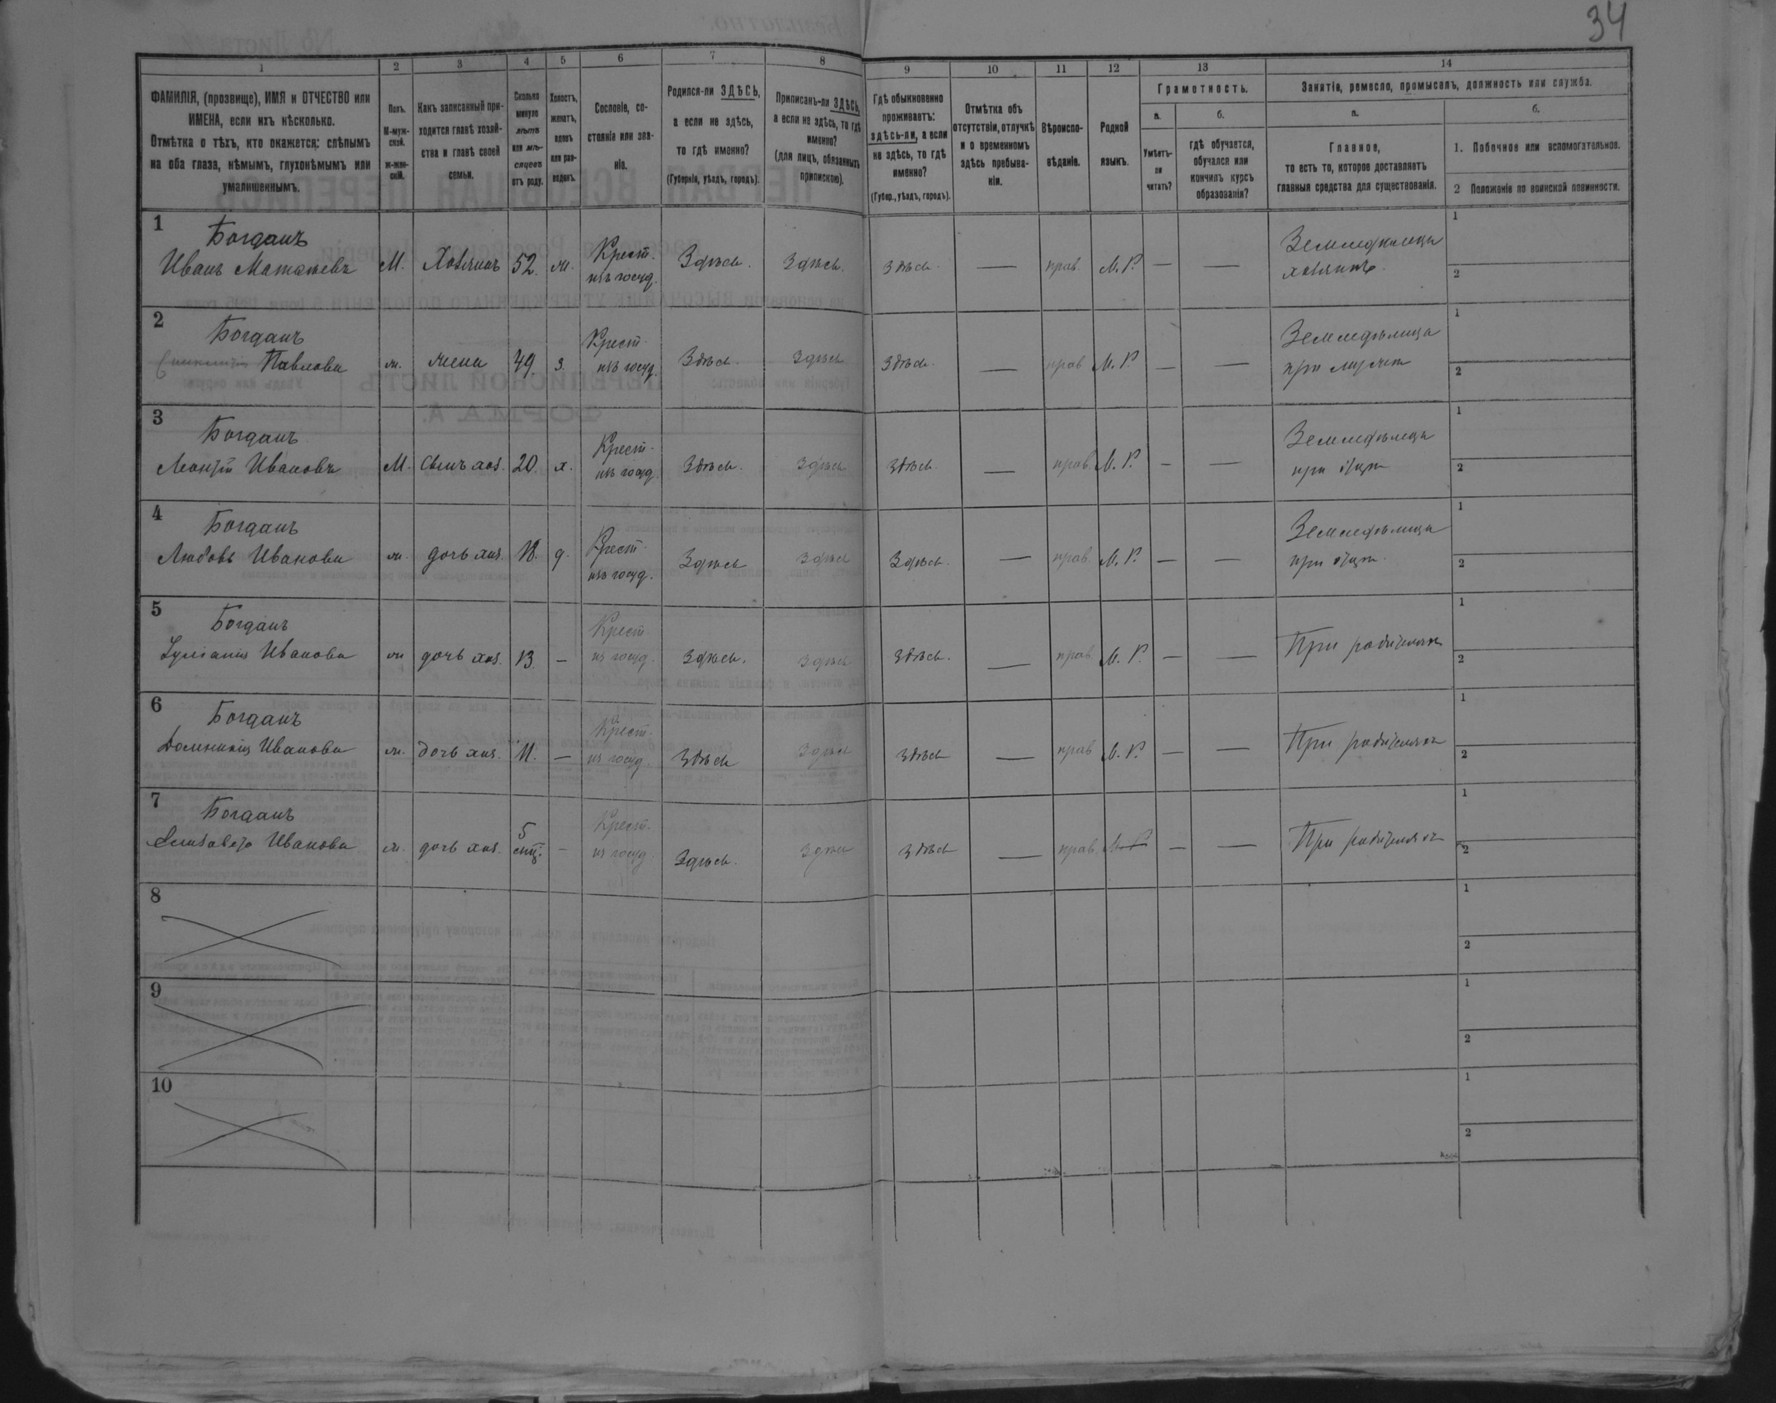 34
1 2 3 4 5 6 7 8 9 10 11 12 13 14
ФАМИЛІЯ, (прозвище), ИМЯ и ОТЧЕСТВО или
ИМЕНА, если ихъ нѣсколько.
Отмѣтка о тѣхъ, кто окажется: слѣпымъ
на оба глаза, нѣмымъ, глухонѣмымъ или
умалишеннымъ.
Полъ.
М-муж-
ской.
ж-жен-
скій.
Какъ записанный при-
ходится главѣ хозяй-
ства и главѣ своей
семьи.
Сколько
минуло
лѣтъ
или мѣ-
сяцевъ
отъ роду.
Холостъ,
женатъ,
вдовъ
или раз-
веденъ.
Сословіе, со-
стояніе или зва-
ніе.
Родился-ли ЗДѢСЬ,
а если не здѣсь,
то гдѣ именно?
(Губернія, уѣздъ, городъ).
Приписанъ-ли ЗДѢСЬ,
а если не здѣсь, то гдѣ
именно?
(для лицъ, обязанныхъ
припискою).
Гдѣ обыкновенно
проживаетъ:
здѣсь-ли, а если
не здѣсь, то гдѣ
именно?
(Губер., уѣздъ, городъ).
Отмѣтка объ
отсутствіи, отлучкѣ
и о временномъ
здѣсь пребыва-
ніи.
Вѣроиспо-
вѣданіе.
Родной
языкъ.
Грамотность.
а.
Умѣетъ-
ли
читать?
б.
гдѣ обучается,
обучался или
кончилъ курсъ
образованія?
Занятіе, ремесло, промыселъ, должность или служба.
а.
Главное,
то есть то, которое доставляетъ
главныя средства для существованія.
б.
1. Побочное или вспомогательное.
2 Положеніе по воинской повинности.
1
Богданъ
Иванъ Матвѣевъ М. Хозяинъ 52. ж. Крест. изъ госуд. Здѣсь. Здѣсь. Здѣсь. — прав. М.Р. — — Земледѣлецъ
хозяинъ
1
2
2
Богданъ
Павлова ж. жена 49. з. Крест. изъ госуд. Здѣсь. Здѣсь Здѣсь. — прав М.Р. — — Земледѣлица
при мужѣ
1
2
3
Богданъ
Ивановъ М. сынъ хоз. 20. х. Крест. изъ госуд. Здѣсь. Здѣсь Здѣсь. — прав. М.Р. — — Земледѣлецъ
при отцѣ
1
2
4
Богданъ
Любовь Иванова ж. дочь хоз. 18. д. Крест. изъ госуд. Здѣсь Здѣсь Здѣсь. — прав. М.Р. — — Земледѣлица
при отцѣ.
1
2
5
Богданъ
Иванова ж дочь хоз. 13. — Крест. из госуд. Здѣсь. Здѣсь Здѣсь. — прав. М.Р. — — При родителяхъ
1
2
6
Богданъ
Доминикія Иванова ж. дочь хоз. 11. — Крест. из госуд. Здѣсь Здѣсь Здѣсь — прав М.Р. — — При родителяхъ
1
2
7
Богданъ
Елизавета Иванова ж. дочь хоз. 5 — Крест. из госуд Здѣсь. Здѣсь Здѣсь — прав. М.Р — — При родителяхъ
1
2
8
1
2
9
1
2
10
1
2